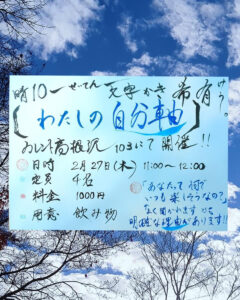 晴10ーせーてん 文字かき 希有 けう。
【わたしの自分軸】
カレント高根沢 103にて開催!!
日時 2月27日(木) 11:00〜12:00
定員 4名
料金 1000円
用意 飲み物
「あなたって何で
いつも楽しそうなの?」
よく聞かれます
明確な理由があります!!